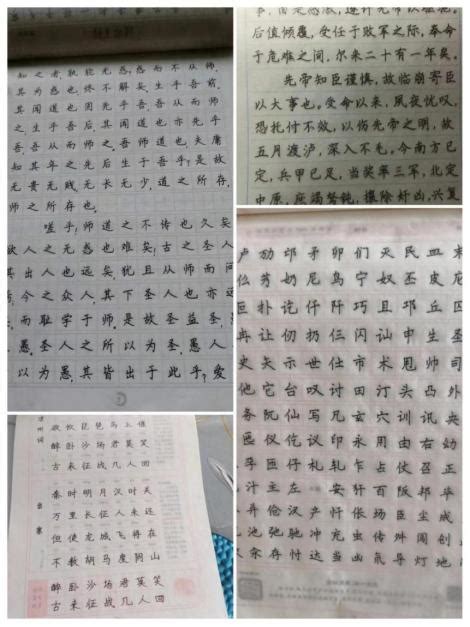 知之者,孰能无惑,惑而不从师,
其为惑也,终不解矣。生乎吾前,
其闻道也固先乎吾,吾从而师
之生乎吾后,其闻道也亦先乎
吾,吾从而师之,吾师道也,夫庸
知其年之先后生于吾乎?是故
无贵无贱,无长无少,道之所存,
师之所存也。
嗟乎!师道之不传也久矣
欲人之无惑也难矣!古之圣人
其出人也远矣,犹且从师而问
今之众人,其下圣人也亦远
而耻学于师,是故圣益圣,
愚。圣人之所以为圣,愚人
以为愚,其皆出于此乎?爱
后值倾覆,受任于败军之际,奉命
于危难之间,尔来二十有一年矣。
先帝知臣谨慎,故临崩寄臣
以大事也。受命以来,夙夜忧叹,
恐托付不效,以伤先帝之明,故
五月渡泸,深入不毛。今南方已
定,兵甲已足,当奖率三军,北定
中原,庶竭驽钝,攘除奸凶,兴复
凉州词
欲饮琵琶马上催
醉卧沙场君莫笑
古来征战几人回
出塞
秦时明月汉时关
万里长征人未还
但使龙城飞将在
不教胡马度阴山
醉卧沙场君莫笑
古来征战几人回
卢劢邙矛卯们灭民皿末
仫芳奶尼鸟宁奴丕皮庀
叵扑讫仟阡巧且邛丘
冉让仞扔仨闪讪申生圣
史矢示世仕市术甩帅司
他它台叹讨田汀头凸外
务阮仙写兄玄穴训讯央
医仪伫议印永用由右幼
孕匝仔札轧乍占仗召正
汁主左安轩百阪邦毕
弁伧汉产忏伥场臣尘成
池弛驰冲充虫传创
汆存忖达当凼氘导灯地